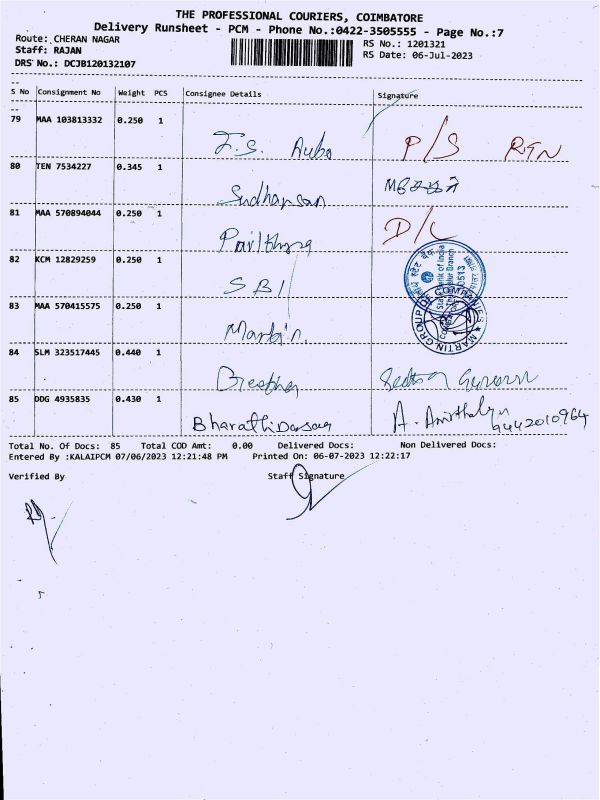 THE PROFESSIONAL COURIERS, COIMBATORE
Delivery Runsheet - PCM - Phone No.:0422-3505555 - Page No.:7
Route: CHERAN NAGAR
RS No.: 1201321
Staff: RAJAN
RS Date: 06-Jul-2023
DRS No.: DCJB120132107
S No Consignment No Weight PCS Consignee Details Signature
79 MAA 103813332 0.250 1
P/S RTN
80 TEN 7534227 0.345 1
Sudharsan
81 MAA 570894044 0.250 1
D/L
82 KCM 12829259 0.250 1
SBI
State Bank of India
83 MAA 570415575 0.250 1
MARTIN GROUP OF COMPANIES
Martin.
84 SLM 323517445 0.440 1
85 DDG 4935835 0.430 1
9442010964
Total No. Of Docs: 85 Total COD Amt: 0.00 Delivered Docs: Non Delivered Docs:
Entered By :KALAIPCM 07/06/2023 12:21:48 PM Printed On: 06-07-2023 12:22:17
Verified By Staff Signature